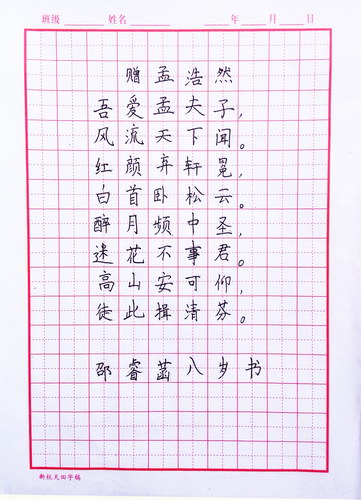 班级 姓名 年 月 日
赠孟浩然
吾爱孟夫子，
风流天下闻。
红颜弃轩冕，
白首卧松云。
醉月频中圣，
迷花不事君。
高山安可仰，
徒此揖清芬。
邵睿菡八岁书
新概念田字稿